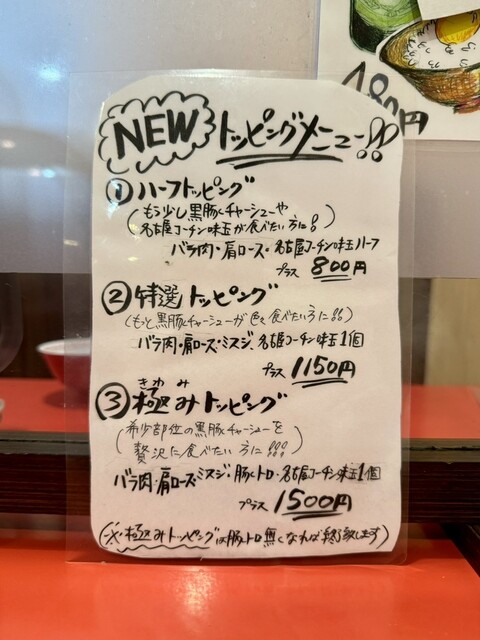 480円
NEW トッピングメニュー!!
① ハーフトッピング
(もう少し黒豚チャーシューや
名古屋コーチン味玉が食べたい方に!)
バラ肉・肩ロース・名古屋コーチン味玉ハーフ
プラス 800円
② 特選トッピング
(もっと黒豚チャーシューが色々食べたい方に!!)
バラ肉・肩ロース・ミスジ、名古屋コーチン味玉1個
プラス 1150円
きわみ
③ 極みトッピング
(希少部位の黒豚チャーシューを
贅沢に食べたい方に!!!)
バラ肉・肩ロース・ミスジ・豚トロ・名古屋コーチン味玉1個
プラス 1500円
(※極みトッピングは豚トロ無くなれば終了致します)